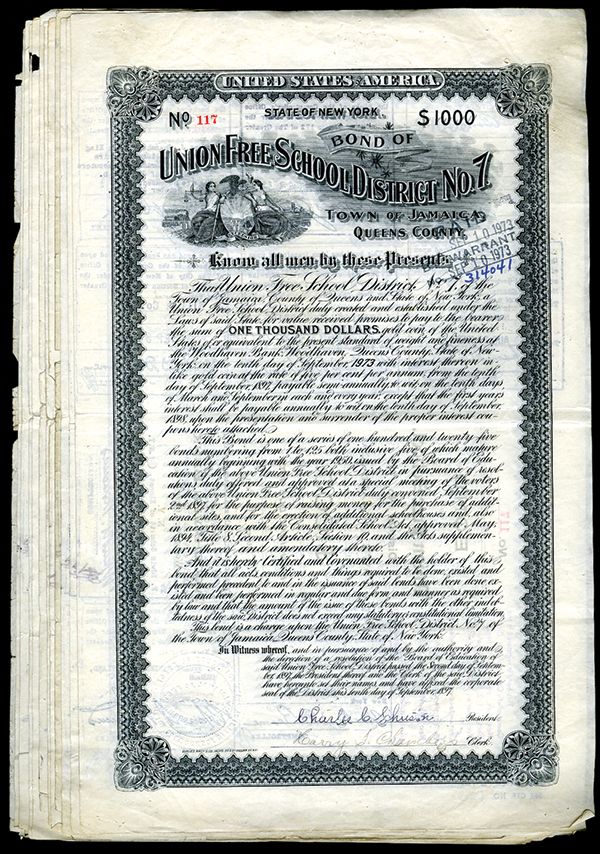 UNITED STATES OF AMERICA
STATE OF NEW YORK
No 117
$1000
BOND OF
UNION FREE SCHOOL DISTRICT NO. 7
TOWN OF JAMAICA,
QUEENS COUNTY.
Know all men by these Presents
SEP 10 1973
WARRANT
SEP 10 1973
No 314041
That Union Free School District No. 7, of the
Town of Jamaica, County of Queens and State of New York, a
Union Free School District duly created and established under the
Laws of said State, for value received promises to pay to the bearer,
the sum of ONE THOUSAND DOLLARS, gold coin of the United
States of or equivalent to the present standard of weight and fineness at
the Woodhaven Bank, Woodhaven, Queens County, State of New
York on the tenth day of September, 1973 with interest thereon in
like gold coin at the rate of per cent per annum, from the tenth
day of September, 1897, payable semi-annually to wit on the tenth days
of March and September in each and every year, except that the first years
interest shall be payable annually to wit on the tenth day of September,
1898, upon the presentation and surrender of the proper interest cou-
pons hereto attached.
This Bond is one of a series of one hundred and twenty five
bonds numbering from 1 to 125 both inclusive, five of which mature
annually beginning with the year 1950 issued by the Board of Edu-
cation of the above Union Free School District in pursuance of resol-
utions duly offered and approved at a special meeting of the voters
of the above Union Free School District duly convened September
2nd 1897 for the purpose of raising money for the purchase of addit-
ional sites, and for the erection of additional schoolhouses and also
in accordance with the Consolidated School Act, approved May,
1894, Title 8, Second Article, Section 10, and the Acts supplemen-
tary thereof and amendatory thereto.
And it is hereby Certified and Covenanted with the holder of this
bond, that all acts conditions and things required to be done, existed and
performed precedent to and in the issuance of said bonds have been done ex-
isted and been performed in regular and due form and manner as required
by law and that the amount of the issue of these bonds with the other indeb-
tedness of the said District does not exceed any statutory or constitutional limitation.
This bond is a charge upon the Union Free School District, No. 7 of
the Town of Jamaica, Queens County, State of New York.
In Witness whereof, and in pursuance of and by the authority and
the direction of a resolution of the Board of Education of
said Union Free School District passed the Second day of Septem-
ber, 1897, the President thereof and the Clerk of the said District
have hereunto set their names and have affixed the corporate
seal of the District, this tenth day of September, 1897.
Charles C.
President.
Harry S.
Clerk.